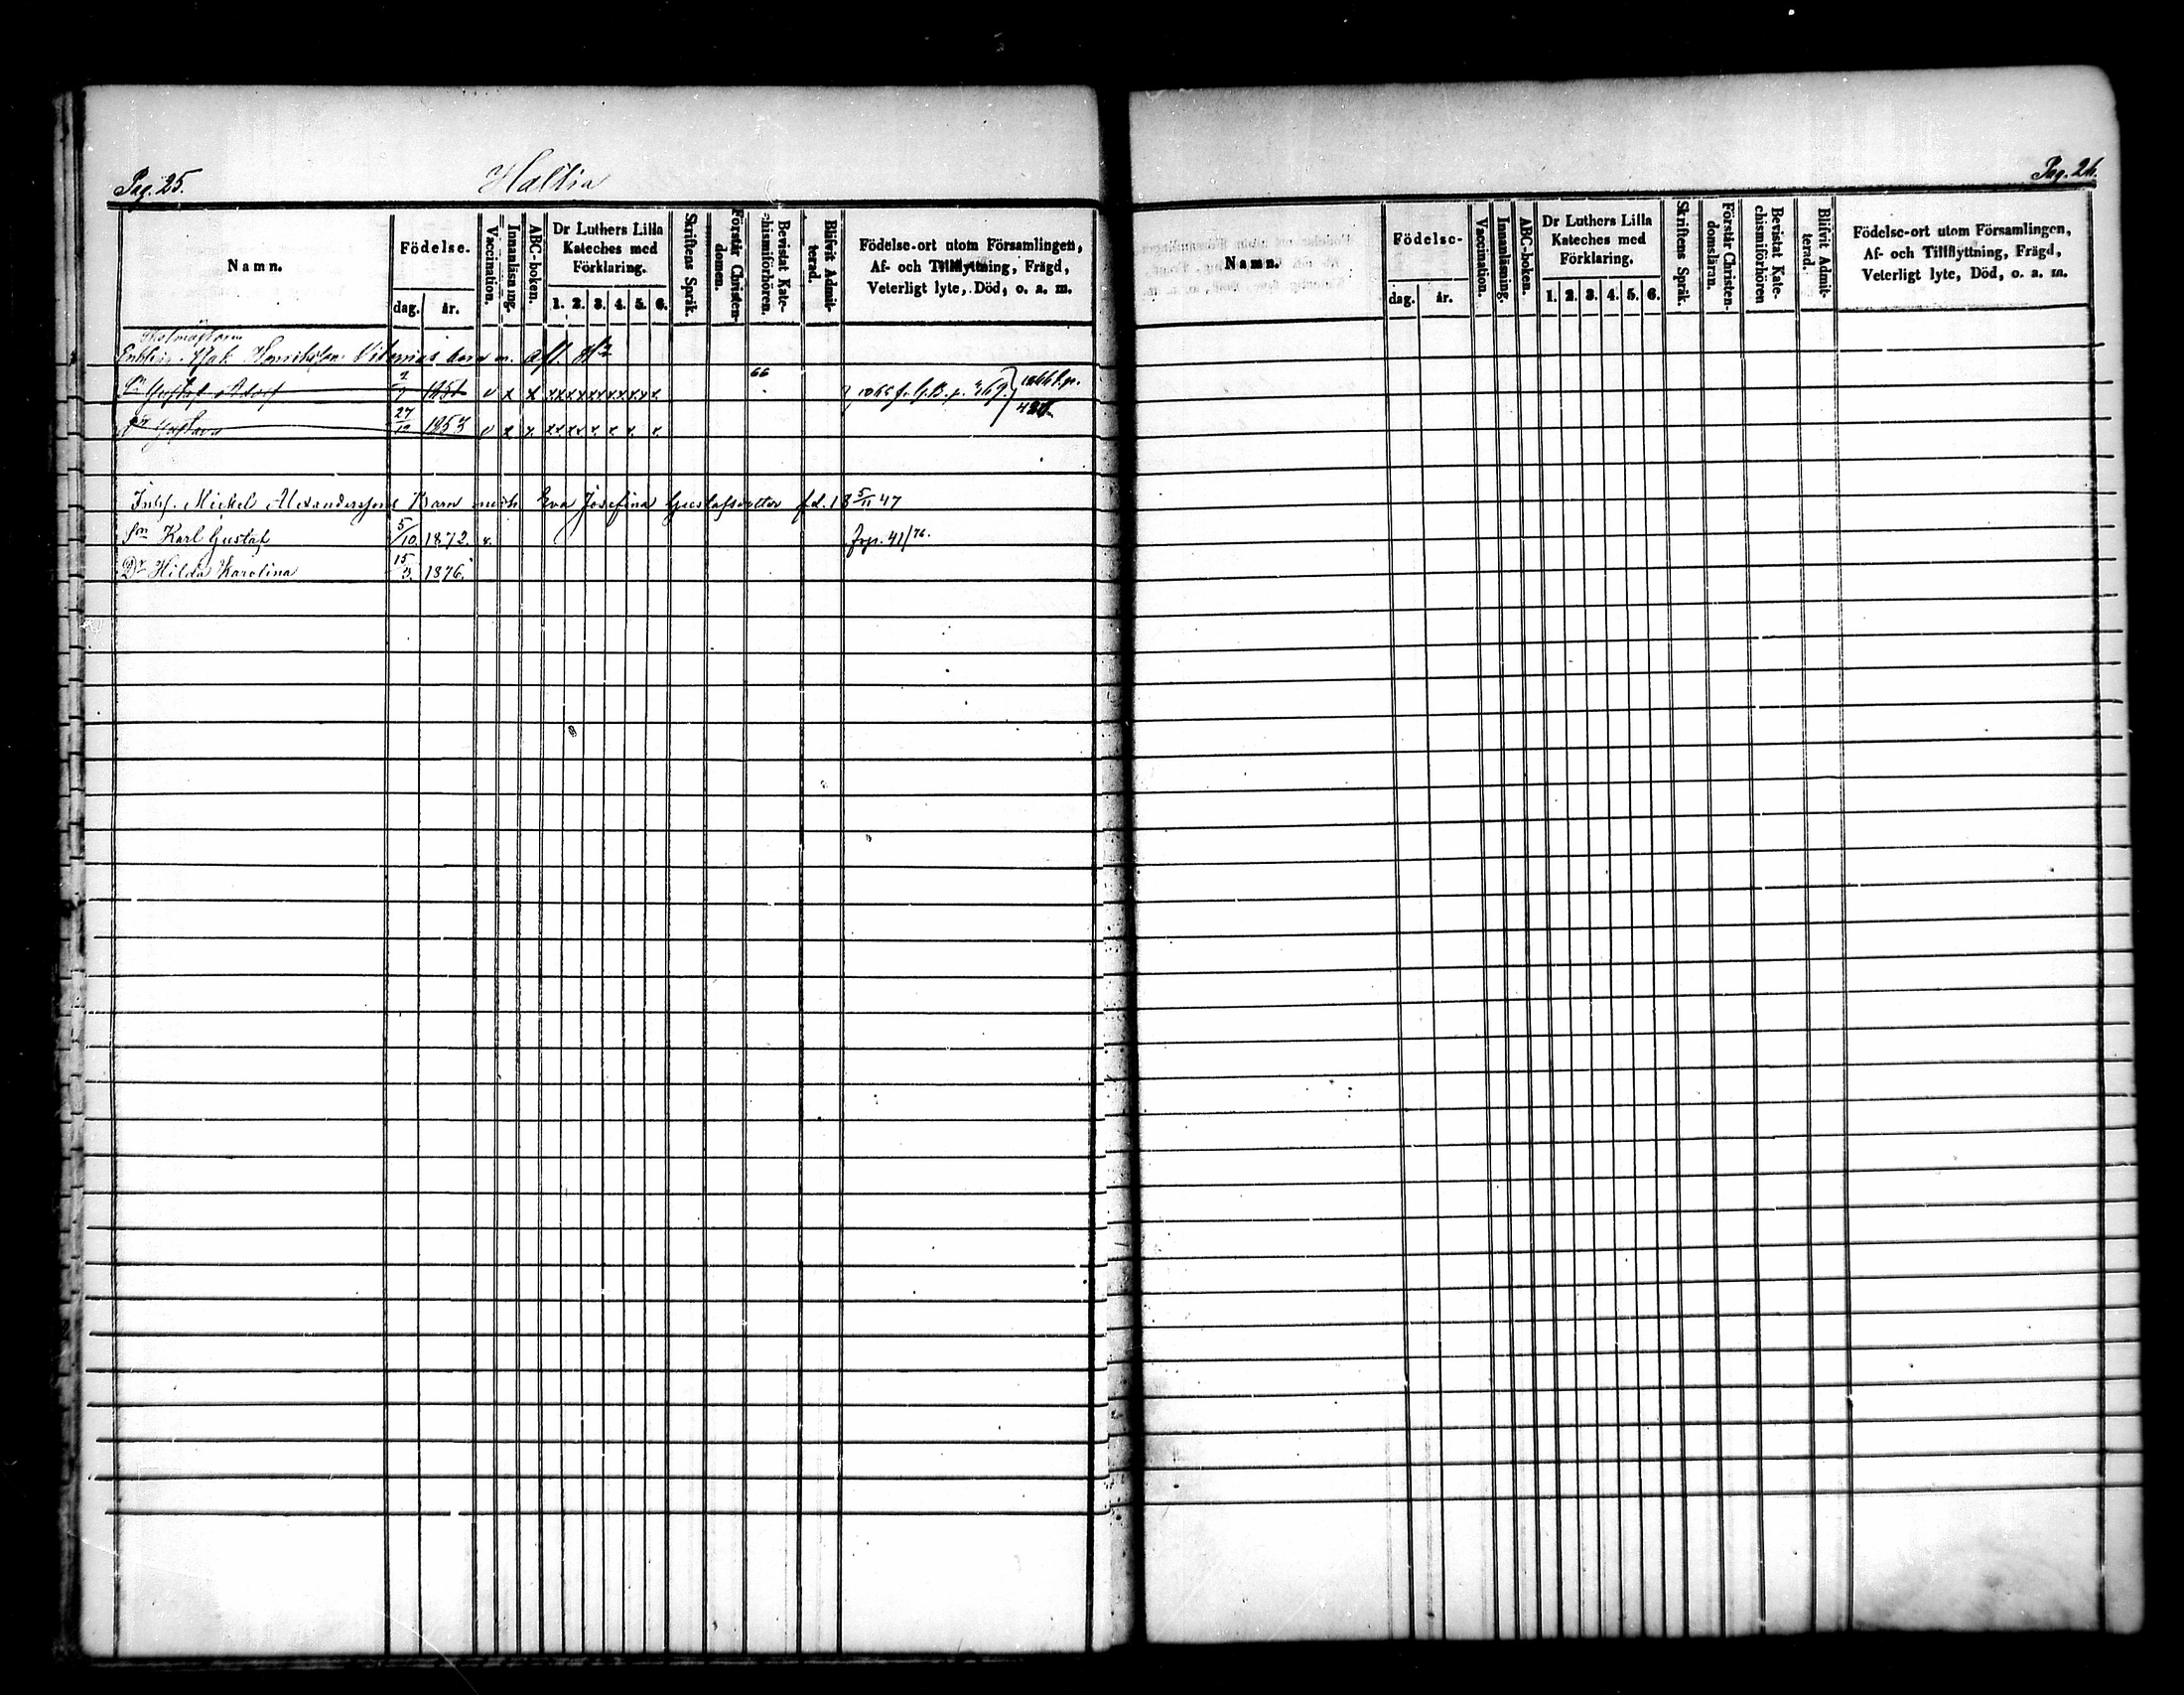 Pag. 25.
Haltia
Namn.
Födelse.
dag.
år.
Vaccination.
Innanläsning.
ABC-boken.
Dr Luthers Lilla
Kateches med
Förklaring.
1. 2. 3. 4. 5. 6.
Skriftens Språk.
Förstår Christen-
domen.
Bevistat Kate-
chismiförhören.
Blifvit Admit-
terad.
Födelse-ort utom Församlingen,
Af- och Tillflyttning, Frägd,
Veterligt lyte, Död, o. a. m.
Henriksson barn m.
66
Sn Gustaf Adolf 2/9 1851 v x x xx xx xx xx xx x. 1865 fr. G.B. p. 469. 1866 l. p.
Dr Gustava 27/12 1853 v x x. xx xx x. x. x. x.
Inhs. Mickel Alexanderssons Barn med Eva Josefina Gustafsdotter fd. 18 5/11 47
Son Karl Gustaf 5/10. 1872. v. frp. 41/76.
Dr Hilda Karolina 15/3. 1876.
Pag. 26.
Namn.
Födelse-
dag.
år.
Vaccination.
Innanläsning.
ABC-boken.
Dr Luthers Lilla
Kateches med
Förklaring.
1. 2. 3. 4. 5. 6.
Skriftens Språk.
Förstår Christen-
domsläran.
Bevistat Kate-
chismiförhören
Blifvit Admit-
terad.
Födelse-ort utom Församlingen,
Af- och Tillflyttning, Frägd,
Veterligt lyte, Död, o. a. m.